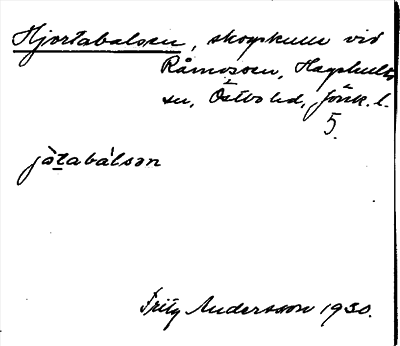 Hjortabalsen, skogskulle vid
Råmossen, Hagshults
sn, Östbo hd, Jönk. l.
5.
jò̱ṯabálsən
Fritz Andersson 1930.